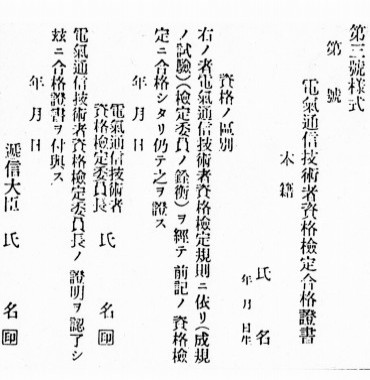 第三號様式
第　號
電氣通信技術者資格檢定合格證書
本籍
氏　名
年　月　日生
資格ノ區別
右ノ者電氣通信技術者資格檢定規則ニ依リ(成規
ノ試驗)(檢定委員ノ銓衡)ヲ經テ前記ノ資格檢
定ニ合格シタリ仍テ之ヲ證ス
年　月　日
電氣通信技術者
資格檢定委員長　氏　名　印
電氣通信技術者資格檢定委員長ノ證明ヲ認了シ
玆ニ合格證書ヲ付與ス
年　月　日
遞信大臣　氏　名　印